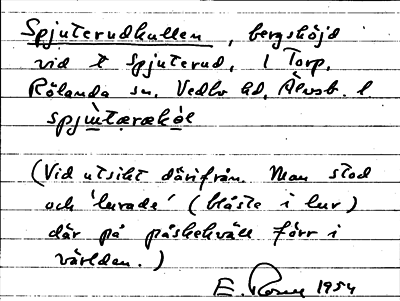 Spjuterudkullen, bergshöjd
vid t Spjuterud, 1 Torp,
Rölanda sn, Vedbo hd, Älvsb. l
spjùtærækǿl
(Vid utsikt därifrån. Man stod
och 'lurade' (blåste i lur)
där på påskekväll förr i
världen.)
E. 1954